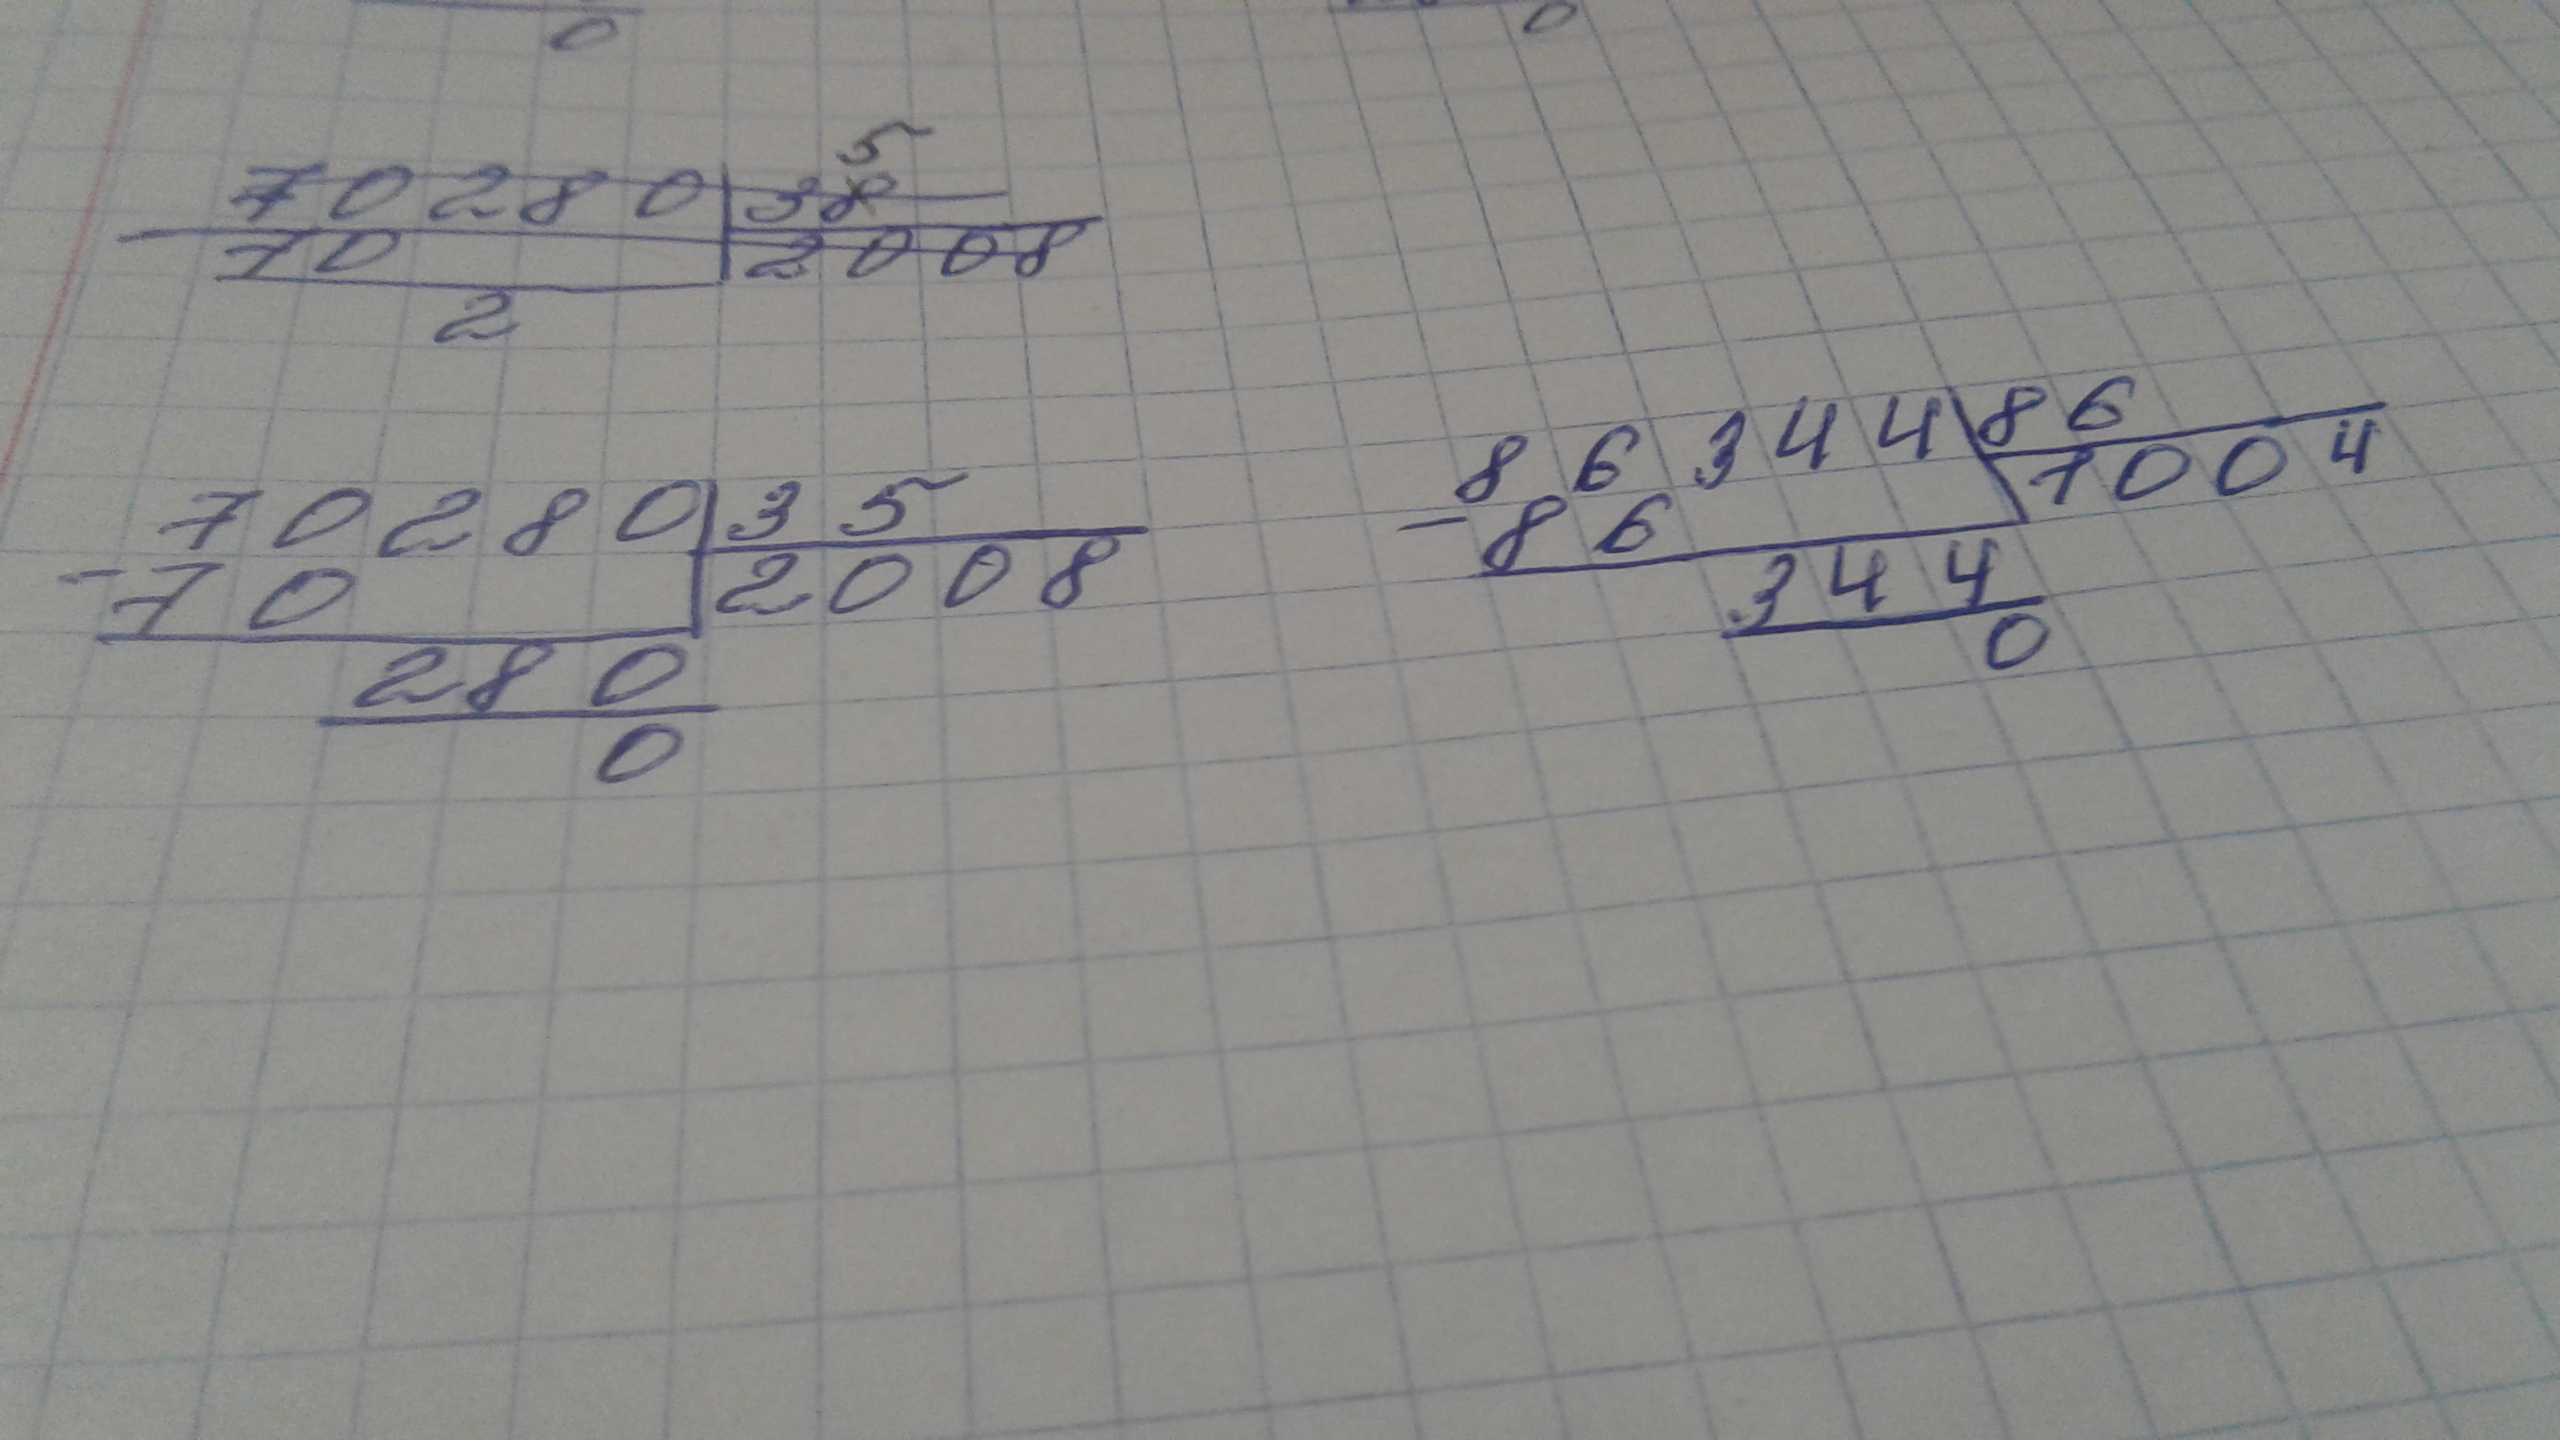 0 0
5
70280 38
- 70 2008
2
70280 35
- 70 2008
280
0
86344 86
- 86 1004
344
0